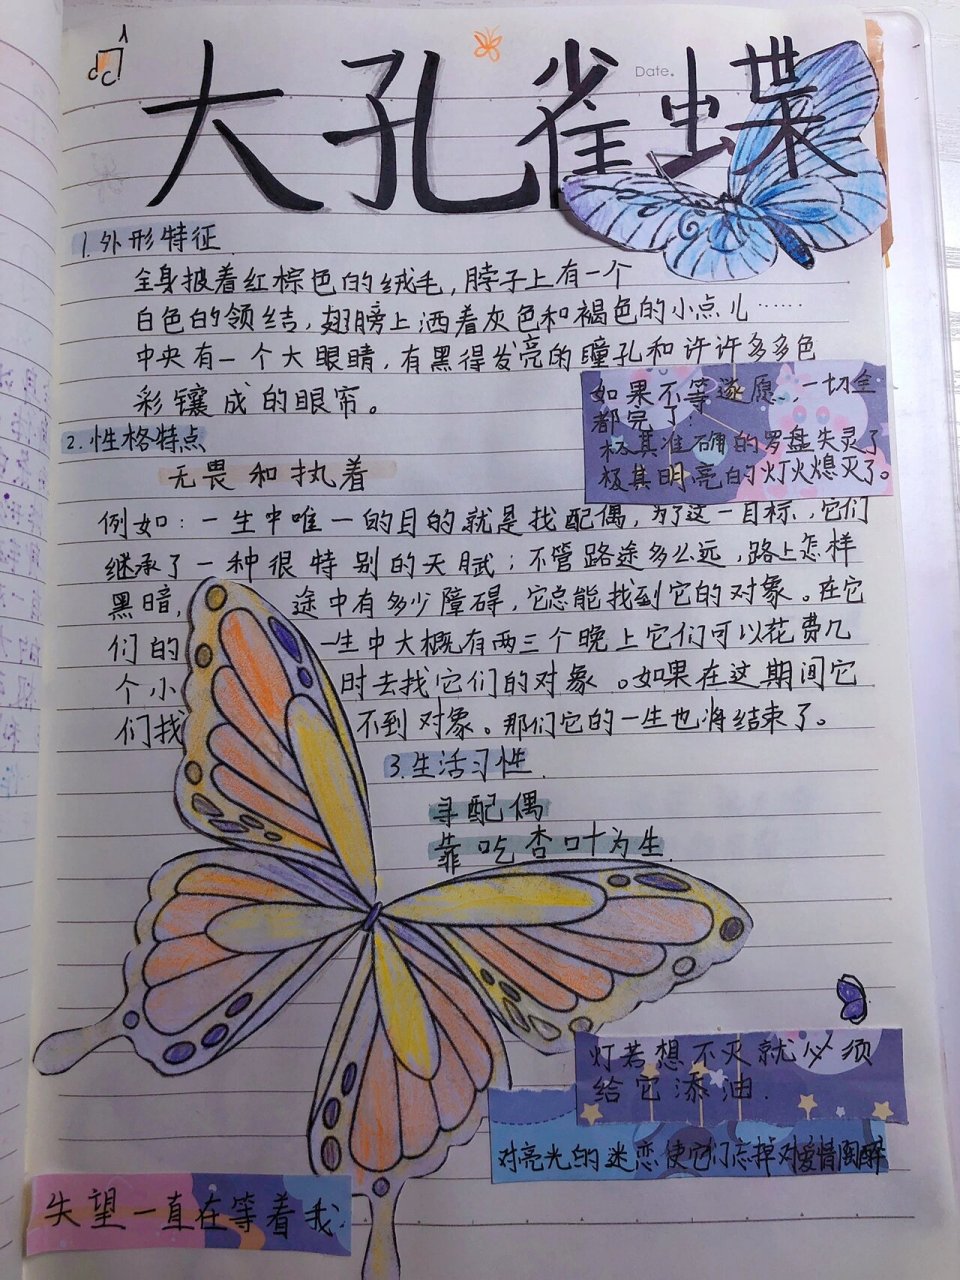 大孔雀蝶
Date.
1.外形特征
全身披着红棕色的绒毛，脖子上有一个
白色的领结，翅膀上洒着灰色和褐色的小点儿……
中央有一个大眼睛，有黑得发亮的瞳孔和许许多多色
彩镶成的眼帘。
如果不等遂愿，一切全
都完了！
极其准确的罗盘失灵了
极其明亮的灯火熄灭了。
2.性格特点
无畏和执着
例如：一生中唯一的目的就是找配偶，为了这一目标，它们
继承了一种很特别的天赋；不管路途多么远，路上怎样
黑暗，途中有多少障碍，它总能找到它的对象。在它
们的一生中大概有两三个晚上它们可以花费几
个小时去找它们的对象。如果在这期间它
们找不到对象。那们它的一生也将结束了。
3.生活习性.
寻配偶
靠吃杏叶为生.
灯若想不灭就必须
给它添油.
对亮光的迷恋使它们忘掉对爱情陶醉
失望一直在等着我.